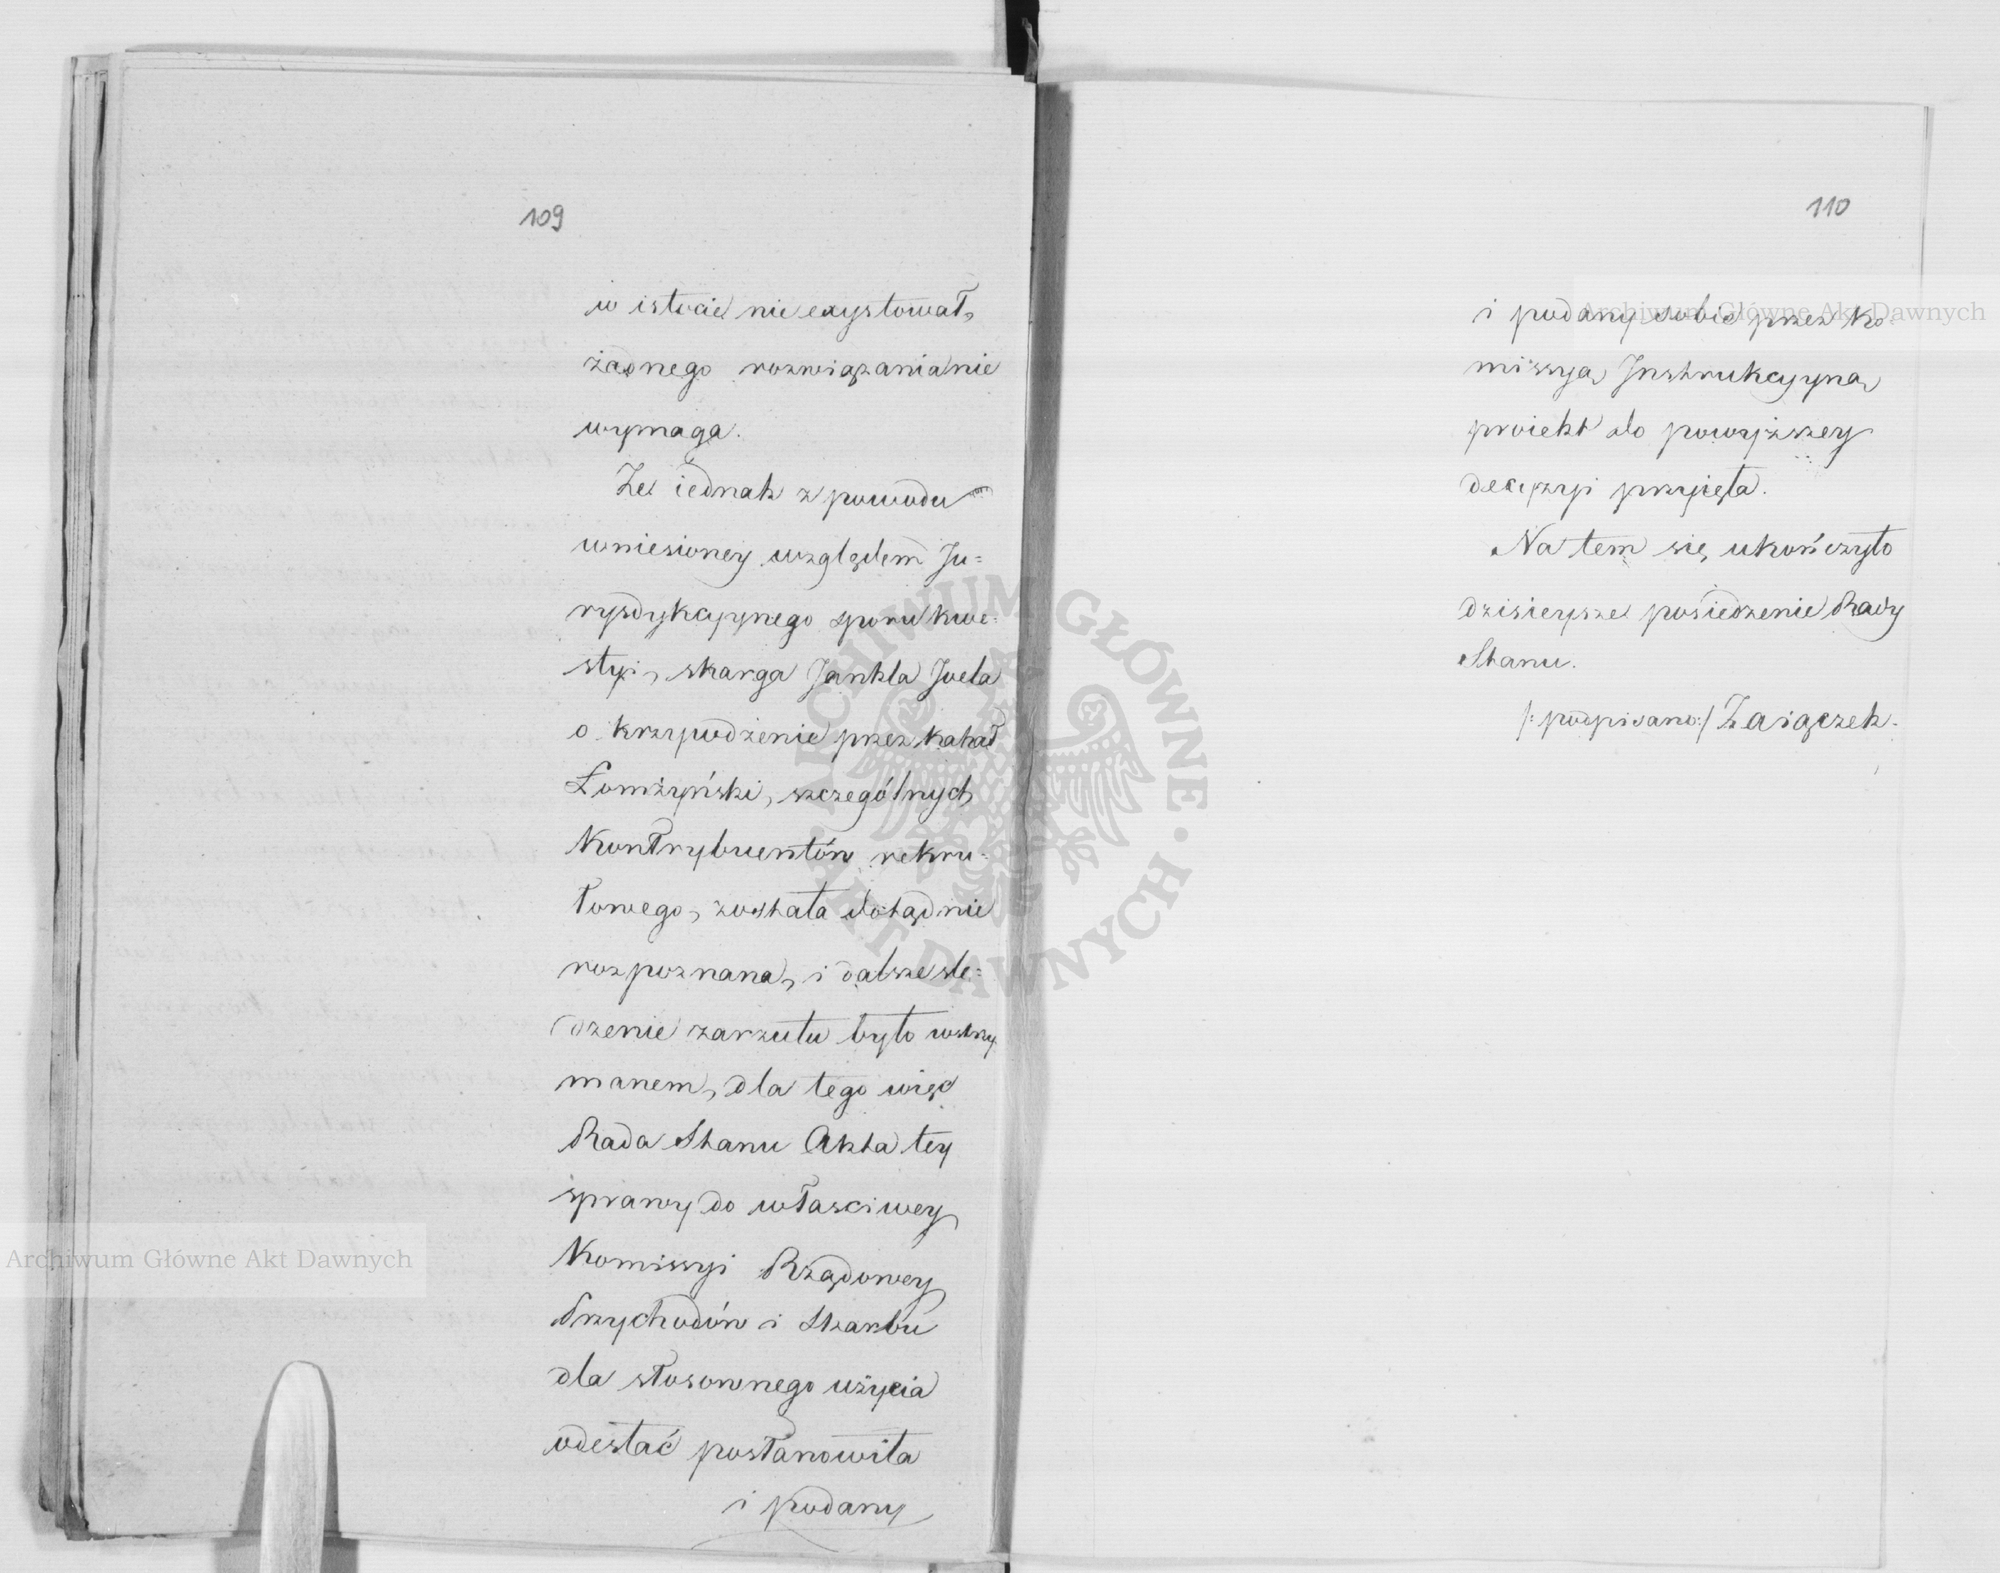 109
w istocie nie exystował,
żadnego rozwiązania nie
wymaga.
Że iednak z powodu
wniesioney względem Ju=
rysdykcyynego sporu kwe=
styi, skarga Jankla Joela
o krzywdzenie przez Kahał
Łomżyński, szczególnych
Kontrybuentów rekru=
towego, została dotąd nie
rozpoznana, i dalsze śle=
dzenie zarzutu było wstrzy
manem, dla tego więc
Rada Stanu Akta tey
sprawy do właściwey
Komissyi Rządowey
Przychodów i Skarbu
dla stosownego użycia
odesłać postanowiła
i podany
110
i podany sobie przez Ko=
missyą Instrukcyyną
proiekt do powyższey
decyzyi przyięła.
Na tem się ukończyło
dzisieysze posiedzenie Rady
Stanu.
/:podpisano:/ Zaiączek.
Archiwum Główne Akt Dawnych
Archiwum Główne Akt Dawnych
ARCHIWUM GŁÓWNE · AKT DAWNYCH ·